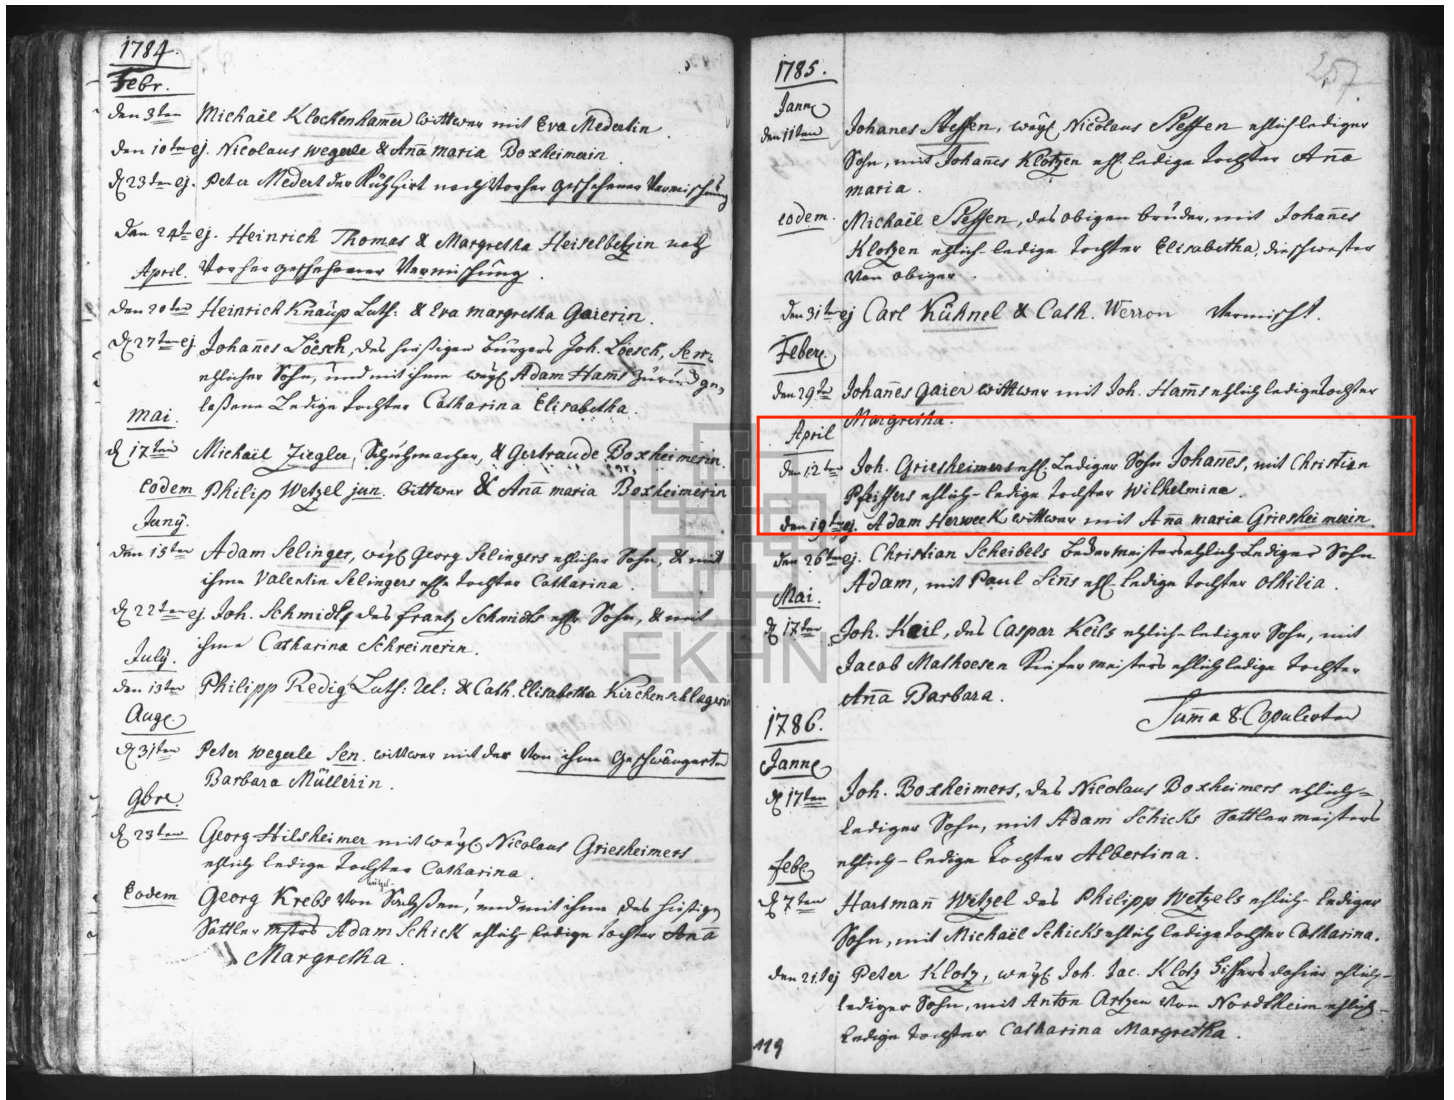 1784.
Febr.
den 3ten Michaël Klockenhamer wittwer mit Eva Medertin.
den 10ten ej. Nicolaus Wegerle & Ana maria Boxheimerin.
d 23ten ej. Peter Medert der Kühhirt nach Vorher geschehener Vermischung
den 24t ej. Heinrich Thomas & Margretha Heiselbetzin nach
Vorher geschehener Vermischung.
April.
den 20ten Heinrich Knaup Luth: & Eva margretha Gaierin.
d 27ten ej. Johanes Löesch, des hiesigen bürgers Joh. Löesch, Sen:
ehlicher Sohn, und mit ihm weyl Adam Hams zurück ge,
laßene Ledige tochter Catharina Elisabetha.
Mai.
d 17ten Michaël Ziegler, Schuhmacher, & Gertraude Boxheimerin.
Eodem Philip Wetzel jun. wittwer & Ana maria Boxheimerin
Juny.
den 15ten Adam Selinger, weyl Georg Selingers ehlicher Sohn, & mit
ihme Valentin Selingers ehl. tochter Catharina.
d 22ten ej. Joh. Schmidt, des Frantz Schmidts ehl. Sohn, & mit
ihme Catharina Schreinerin.
July.
den 13ten Philipp Redig Luth: Rel: & Cath. Elisabetha Kirchenschlagerin
Aug.
d 31ten Peter Wegerle Sen. wittwer mit der Von ihm geschwängerten
Barbara Müllerin.
9bre
d 23ten Georg Hilsheimer mit weyl Nicolaus Griesheimers
ehlich ledige tochter Catharina.
Eodem Georg Krebs Von und mit ihm des hiesigen
Sattler mstrs Adam Schick ehlich ledige tochter Ana
Margretha.
257
1785.
Jann
den 11ten Johanes Steffen, weyl Nicolaus Steffen ehlich lediger
Sohn, mit Johanes Klotzen ehl. ledige tochter Ana
maria.
eodem. Michaël Steffen, des obigen bruder, mit Johanes
Klotzen ehlich-ledige tochter Elisabetha, die schwester
Von obiger.
den 31ten ej Carl Kühnel & Cath. Werron Vermischt.
Febr.
den 29.te Johanes Gaier wittwer mit Joh. Hams ehlich ledige tochter
Margretha.
April
den 12ten Joh. Griesheimers ehl. Lediger Sohn Johanes, mit Christian
Pfeiffers ehlich-ledige tochter Wilhelmina.
den 19ten ej. Adam Herweck wittwer mit Ana maria Griesheimerin
den 26ten ej. Christian Scheibels bedermeisters ehlich Lediger Sohn
Adam, mit Paul Sins ehl. ledige tochter Othilia.
Mai.
d 17ten Joh. Keil, des Caspar Keils ehlich-lediger Sohn, mit
Jacob Mathoesen Kiefermeisters ehlich ledige tochter
Ana Barbara.
Suma 8. Copulirte
1786.
Jann
d 17ten Joh. Boxheimers, des Nicolaus Boxheimers ehlich-
lediger Sohn, mit Adam Schicks Sattlermeisters
ehlich-ledige tochter Albertina.
Feb.
d 7ten Hartman Wetzel des Philipp Wetzels ehlich-lediger
Sohn, mit Michaël Schicks ehlich ledige tochter Catharina.
den 21.t ej Peter Klotz, weyl Joh. Jac. Klotz dahier ehlich-
lediger Sohn, mit Anton Artzen Von Nordtheim ehlich-
ledige tochter Catharina Margretha.
119
EKHN